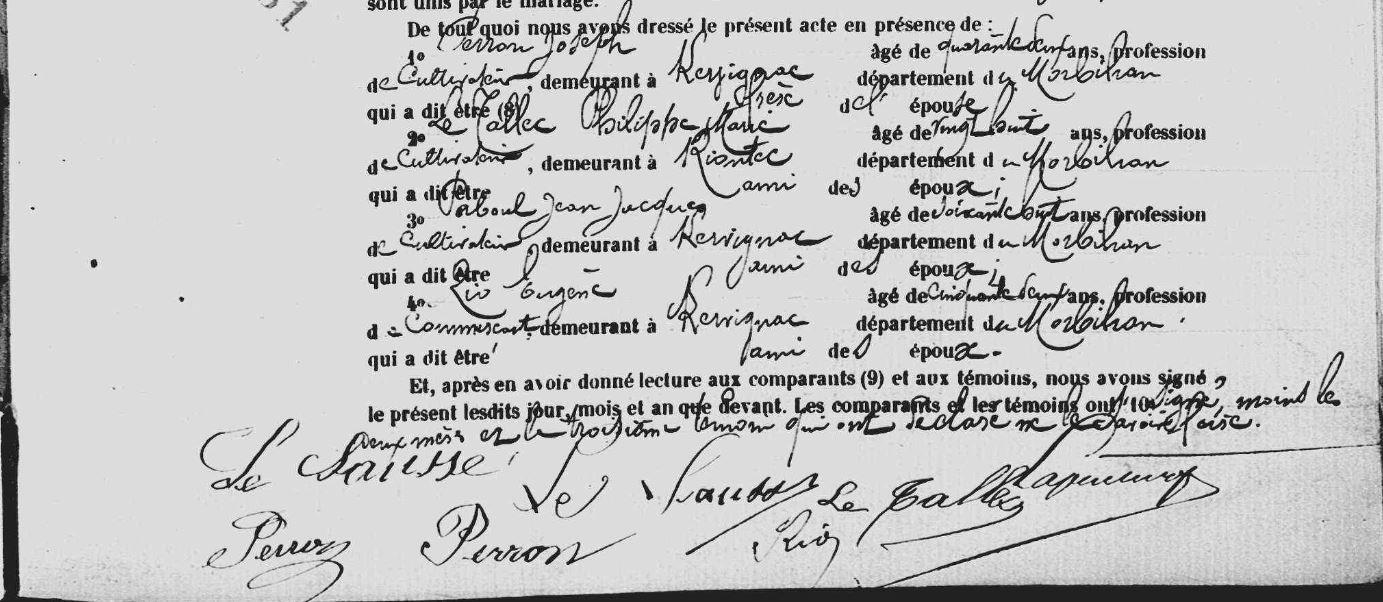 sont unis par le mariage.
De tout quoi nous avons dressé le présent acte en présence de :
1º Perron Joseph âgé de quarante deux ans, profession
de Cultivateur, demeurant à Kervignac département du Morbihan
qui a dit être (8) frère de l' épouse
2º Le Tallec Philippe Marie âgé de vingt huit ans, profession
de Cultivateur, demeurant à Riantec département du Morbihan
qui a dit être ami des époux ;
3º Jean Jacques âgé de soixante huit ans, profession
de Cultivateur, demeurant à Kervignac département du Morbihan
qui a dit être ami des époux ;
4º Rio Eugène âgé de cinquante deux ans, profession
de Commerçant, demeurant à Kervignac département du Morbihan.
qui a dit être ami des époux.
Et, après en avoir donné lecture aux comparants (9) et aux témoins, nous avons signé
le présent lesdits jour, mois et an que devant. Les comparants et les témoins ont (10) signé, moins les
deux mères et le troisième témoin qui ont déclaré ne le savoir faire.
Le Sausse Le Sausse Le Tallec
Perron Perron Rio